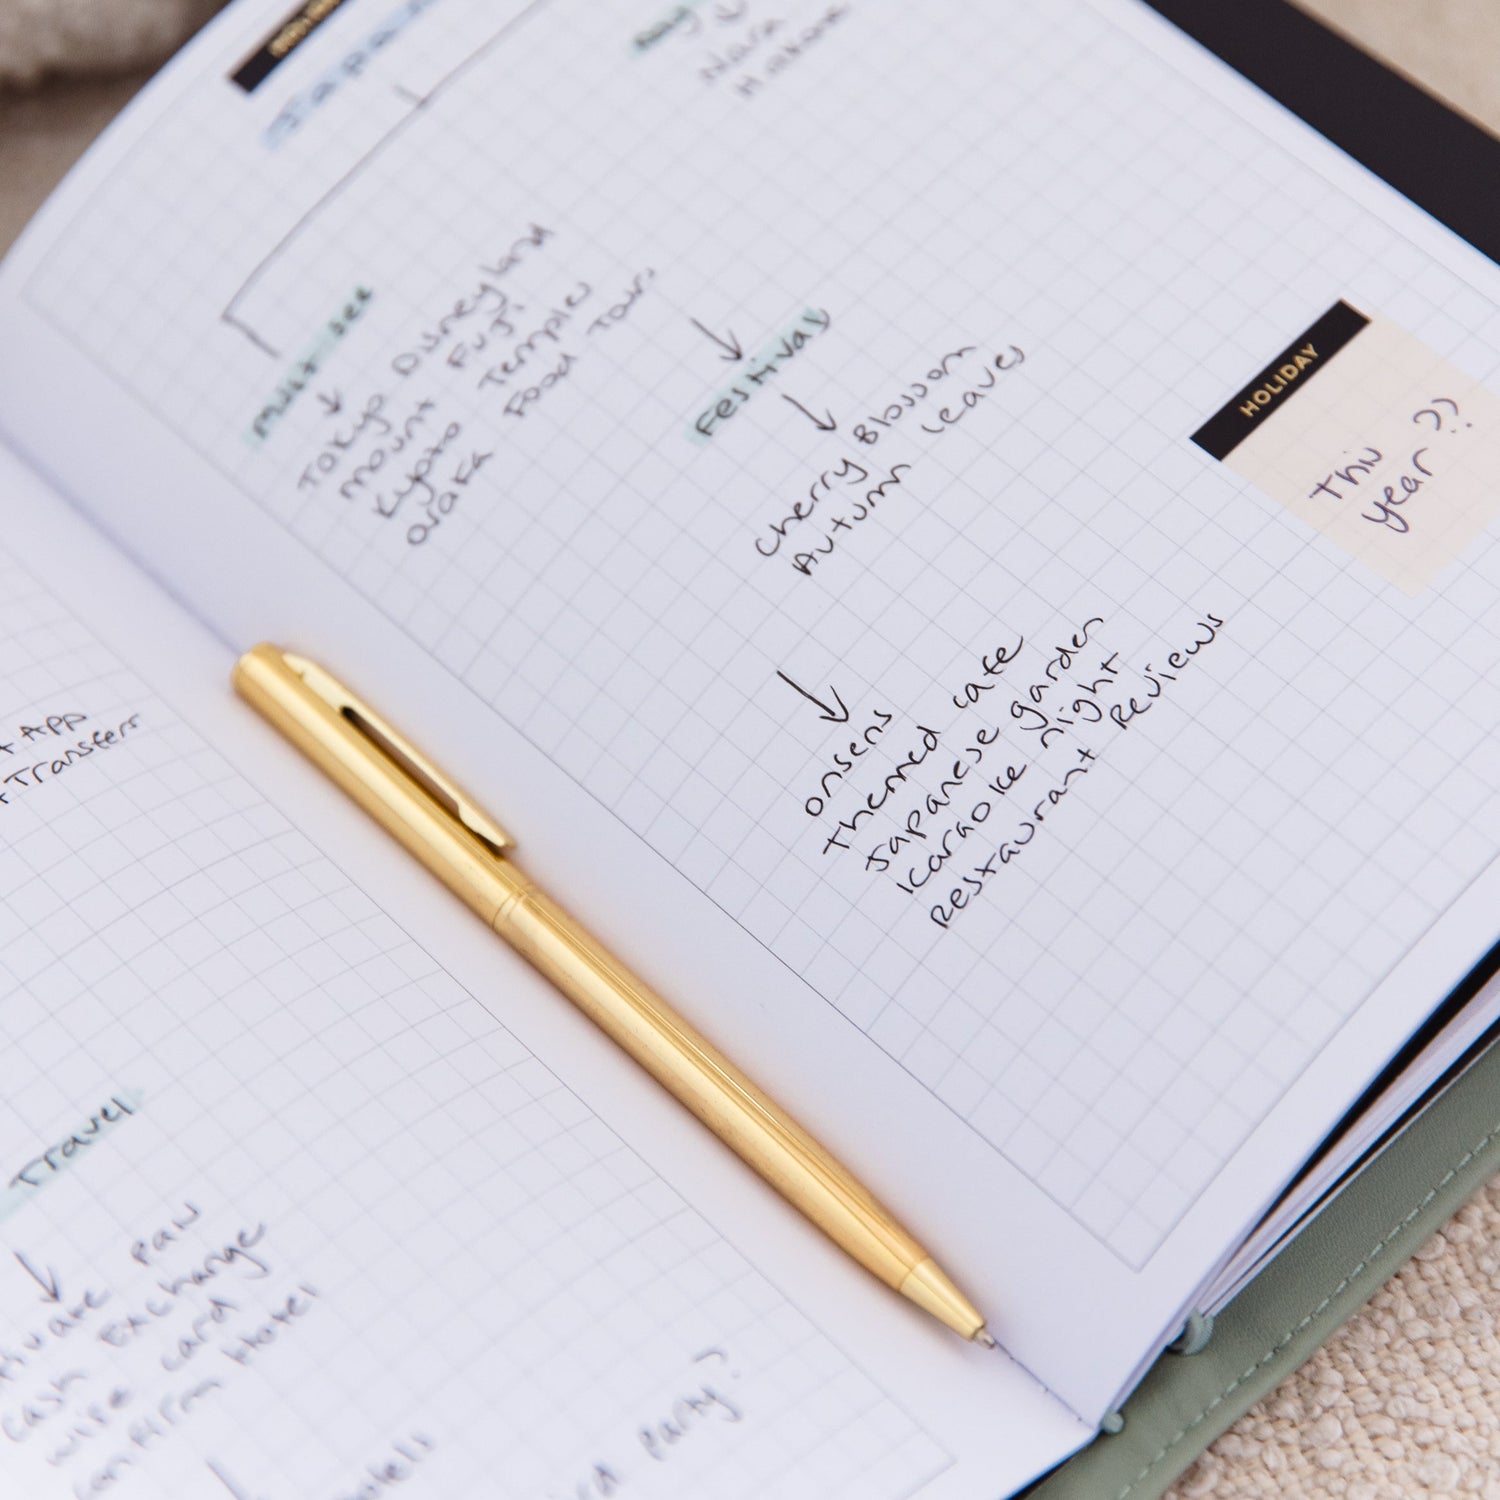 Japan
Day
Nara
Hakone
Must see
Tokyo Disneyland
Mount Fuji
Kyoto Temples
Osaka Food Tour
Festivals
Cherry Blossom
Autumn leaves
HOLIDAY
This
year ??
onsens
themed cafe
Japanese garden
Karaoke night
Restaurant Reviews
App
Transfers
Travel
Pass
Cash Exchange
wise card
confirm Hotel
party?